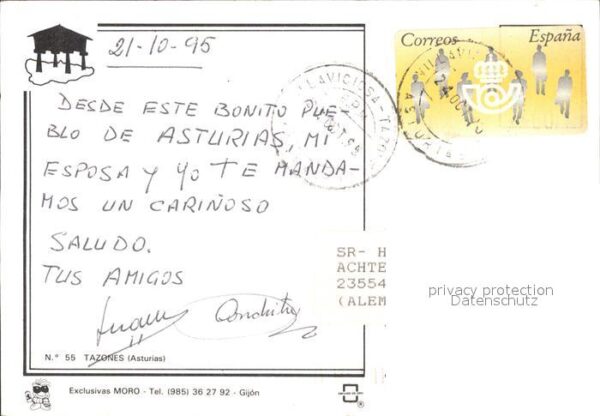 21-10-95
Correos España
DESDE ESTE BONITO PUE-
BLO DE ASTURIAS, MI
ESPOSA Y YO TE MANDA-
MOS UN CARIÑOSO
SALUDO.
TUS AMIGOS
SR- H
ACHTE
23554
(ALEM
privacy protection
Datenschutz
N.° 55 TAZONES (Asturias)
Exclusivas MORO - Tel. (985) 36 27 92 - Gijón